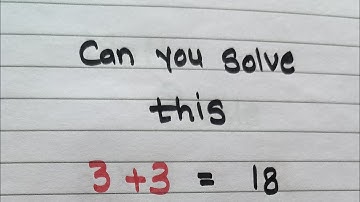 Can you solve
this
3 + 3 = 18